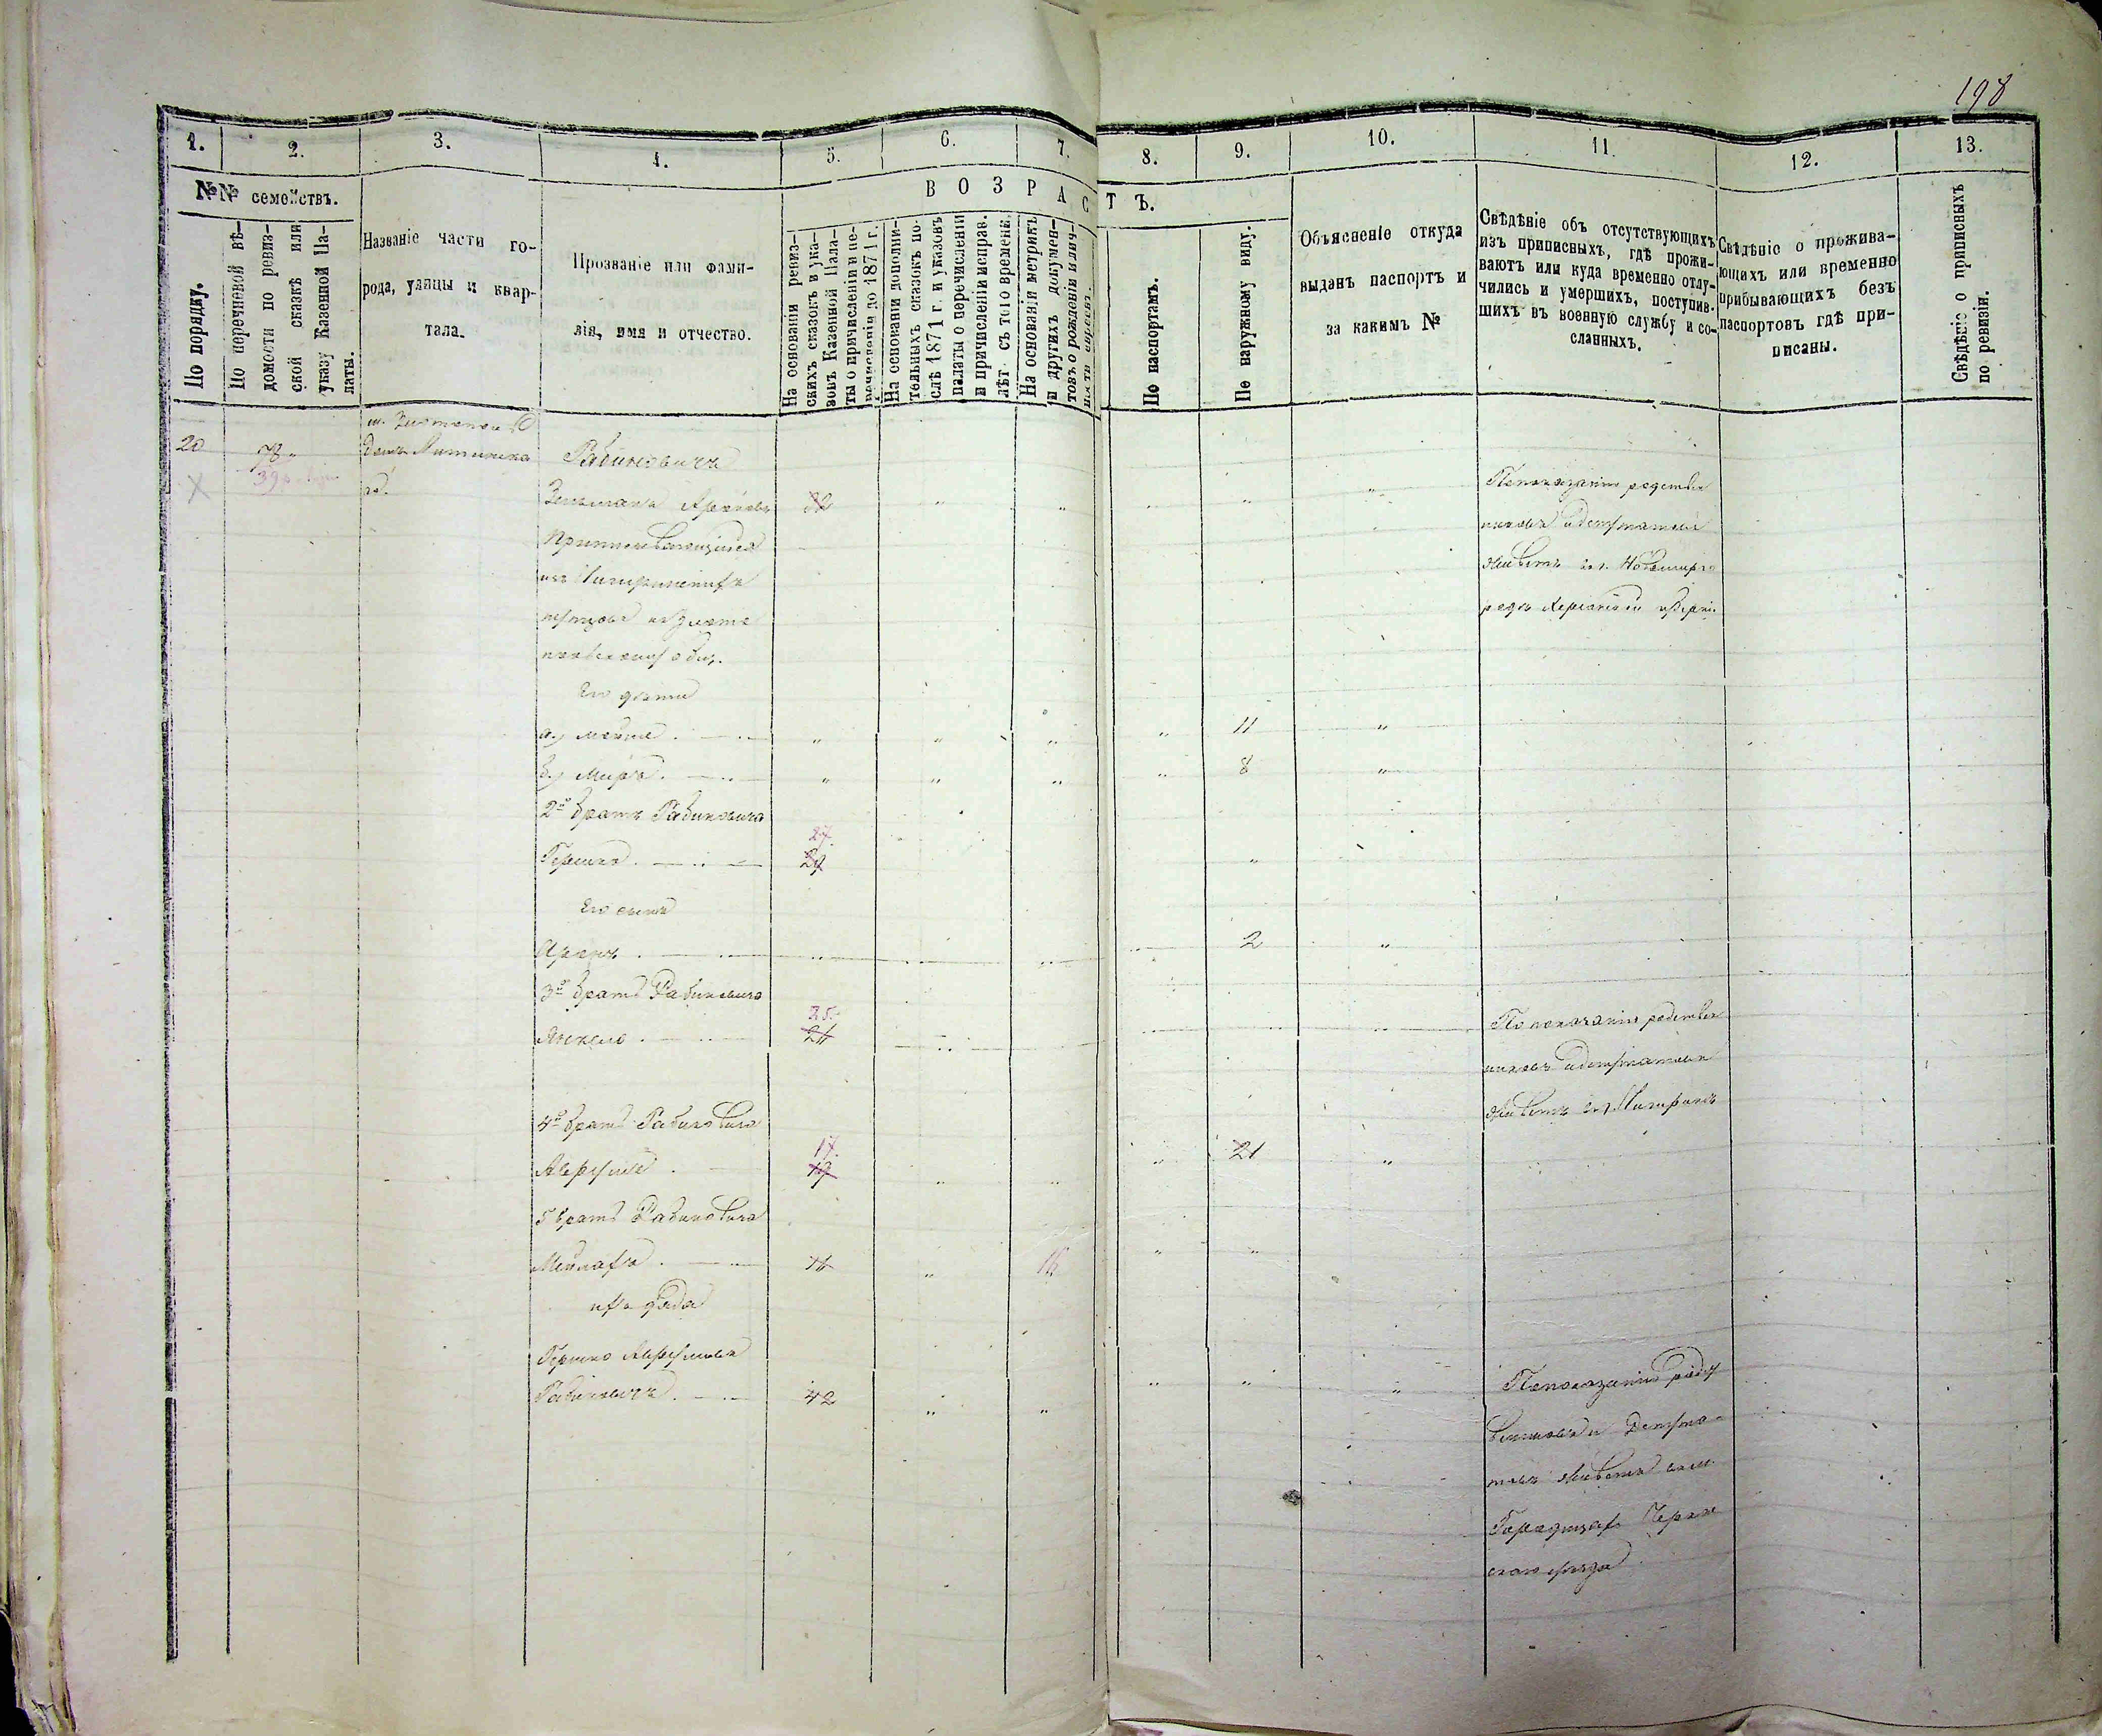 198
1.
2.
3.
4.
5.
6.
7.
8.
9.
10.
11.
12.
13.
№№ семействъ.
По порядку.
По перечневой вѣ-
домости по ревиз-
ской сказкѣ или
указу Казенной Па-
латы.
Названіе части го-
рода, улицы и квар-
тала.
Прозваніе или фами-
лія, имя и отчество.
ВОЗРАСТЪ.
На основаніи ревиз-
скихъ сказокъ и ука-
зовъ Казенной Пала-
ты о причисленіи и пе-
речисленіи до 1871 г.
На основаніи дополни-
тельныхъ сказокъ по-
слѣ 1871 г. и указовъ
палаты о перечисленіи
и причисленіи исправ.
лѣт съ того времени.
На основаніи метрикъ
и другихъ докумен-
товъ о рожденіи и лич-
ности евреевъ.
По паспортамъ.
По наружному виду.
Объясненіе откуда
выданъ паспортъ и
за какимъ №
Свѣдѣніе объ отсутствующихъ
изъ приписныхъ, гдѣ прожи-
ваютъ или куда временно отлу-
чились и умершихъ, поступив-
шихъ въ военную службу и со-
сланныхъ.
Свѣдѣніе о прожива-
ющихъ или временно
прибывающихъ безъ
паспортовъ гдѣ при-
писаны.
Свѣдѣніе о приписныхъ
по ревизіи.
20
78
39
м. Златополь
Рабиновичъ
Зельманъ Ароновъ
32
По показанію родствен
никовъ и депутатовъ
живетъ въ г. Новомирго
родѣ Херсонской губерніи
изъ Чигиринскихъ
купцовъ въ Злато
польское общ.
Его дѣти
а., Мойше
11
б., Миръ
8
2й братъ Рабиновича
Гершко
27
29
Его сынъ
Аронъ
2
3й братъ Рабиновича
Янкель
25
24
По показанію родствен
никовъ и депутатовъ
живетъ въ г. Чигиринѣ
4й братъ Рабиновича
Аврумъ
17
19
21
5 братъ Рабиновича
14
16
ихъ дядя
Гершко Аврумовъ
Рабиновичъ
42
По показанію родст
венниковъ и Депута-
товъ живетъ въ м.
Городищахъ Черкас
скаго уѣзда